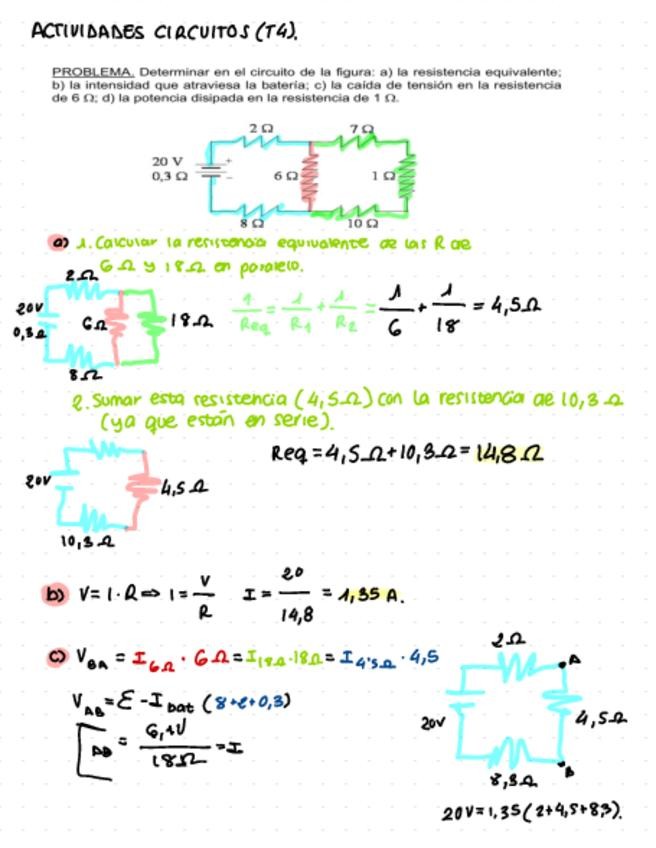 ACTIVIDADES CIRCUITOS (T4).
PROBLEMA. Determinar en el circuito de la figura: a) la resistencia equivalente;
b) la intensidad que atraviesa la batería; c) la caída de tensión en la resistencia
de 6 Ω; d) la potencia disipada en la resistencia de 1 Ω.
2 Ω 7 Ω
20 V
0,3 Ω
+
−
6 Ω 1 Ω
8 Ω 10 Ω
a) 1. Calcular la resistencia equivalente de las R de
6 Ω y 18 Ω en paralelo.
2Ω
20V
0,3Ω
6Ω
18Ω
8Ω
1/Req = 1/R1 + 1/R2 = 1/6 + 1/18 = 4,5Ω
2. Sumar esta resistencia (4,5Ω) con la resistencia de 10,3Ω
(ya que están en serie).
Req = 4,5Ω + 10,3Ω = 14,8Ω
20V
4,5Ω
10,3Ω
b) V = I · R ⇒ I = V/R I = 20/14,8 = 1,35 A.
c) VBA = I6Ω · 6Ω = I18Ω · 18Ω = I4'5Ω · 4,5
VAB = ε - Ibat (8+2+0,3)
= 6,1V/18Ω = I
2Ω
A
20V
4,5Ω
B
8,3Ω
20V = 1,35 (2+4,5+8,3).